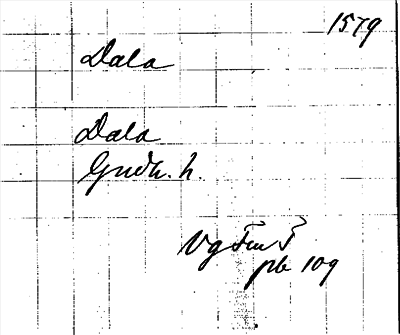 1579
Dala
Dala
Gudh. h.
Vg Fm T
pb 109